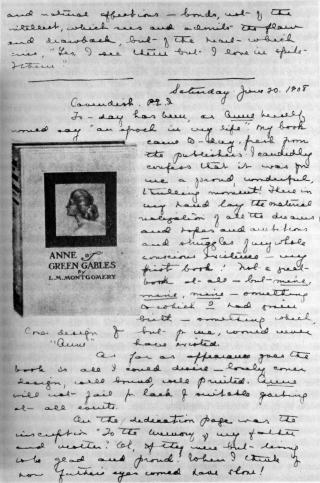 and natural affections – bonds, not of the
intellect, which sees and admits the flaw
and drawback, but of the heart which
cries, "Yes, I see them but I love in spite
of them"
Saturday June 20. 1908
Cavendish, P.E.I
To-day has been, as Anne herself
would say "an epoch in my life". My book
came to-day, fresh from
the publishers. I candidly
confess that it was for
me a proud, wonderful,
thrilling moment! There in
my hand lay the material
realization of all the dreams
and hopes and ambitions
and struggles of my whole
conscious existence – my
first book! Not a great
book at all – but mine,
mine, mine – something
to which I had given
birth – something which,
but for me, would never
have existed.
ANNE of
GREEN GABLES
BY
L. M. MONTGOMERY
Cover design of
"Anne"
As far as appearance goes the
book is all I could desire – lovely cover
design, well bound, well printed. Anne
will not fail for lack of suitable garbing
at all events.
On the dedication page was the
inscription "To the memory of my father
and mother". Oh, if they were but living
to be glad and proud! When I think of
how father's eyes would have shone!